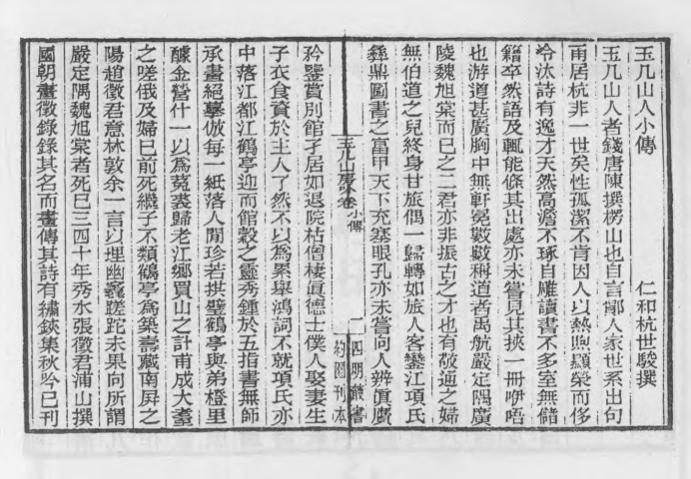 玉几山人小傳
仁和杭世駿撰
玉几山人者錢唐陳撰楞山也自言鄞人家世系出句
甬居杭非一世矣性孤潔不肯因人以熱煦顯榮而侈
冷汰詩有逸才天然高澹不琢自雕讀書不多室無儲
籍卒然語及輒能條其出處亦未嘗見其挾一冊咿唔
也游道甚廣胸中無軒冕數數稱道者禹航嚴定隅廣
陵魏旭棠而巳之二君亦非振古之才也有敬通之婦
無伯道之兒終身甘旅偶一歸轉如旅人客鑾江項氏
彝鼎圖書之富甲天下充塞眼孔亦未嘗向人辨眞贗
玉几山房
卷
小傳
一
四明叢書
約園刊本
矜鑒賞別館孑居如退院枯僧棲眞德士僕人娶妻生
子衣食資於主人了然不以為累舉鴻詞不就項氏亦
中落江都江鶴亭迎而館穀之靈秀鍾於五指書無師
承畫絕摹倣每一紙落人閒珍若拱璧鶴亭與弟橙里
醵金營什一以為菟裘歸老江鄉買山之計甫成大耋
之嗟俄及婦巳前死繼子不類鶴亭為築壽藏南屏之
陽趙徵君意林敦余一言以埋幽竁蹉跎未果向所謂
嚴定隅魏旭棠者死巳三四十年秀水張徵君浦山撰
國朝畫徵錄錄其名而畫傳其詩有繡鋏集秋吟巳刊